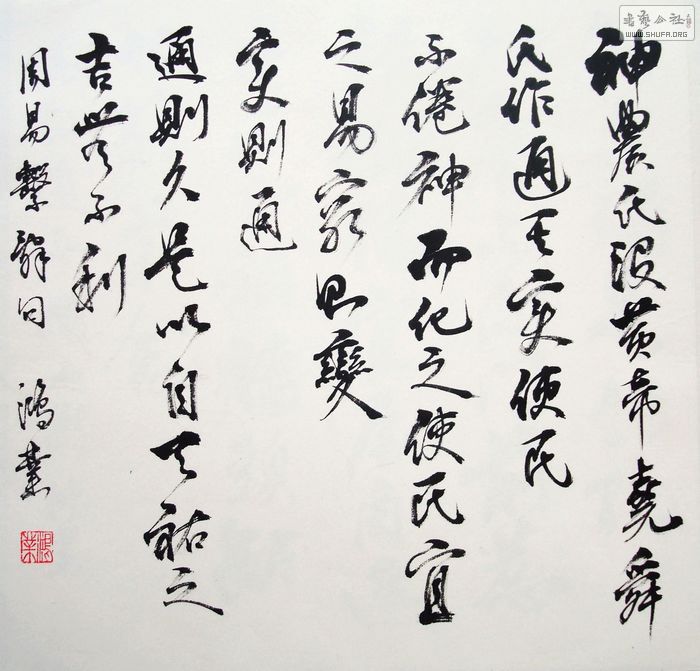 神農氏沒黄帝堯舜
氏作通其变使民
不倦神而化之使民宜
之易窮則變
变則通
通則久是以自天祐之
吉無不利
周易繫辭句 鴻業
鴻業
书艺公社
WWW.SHUFA.ORG